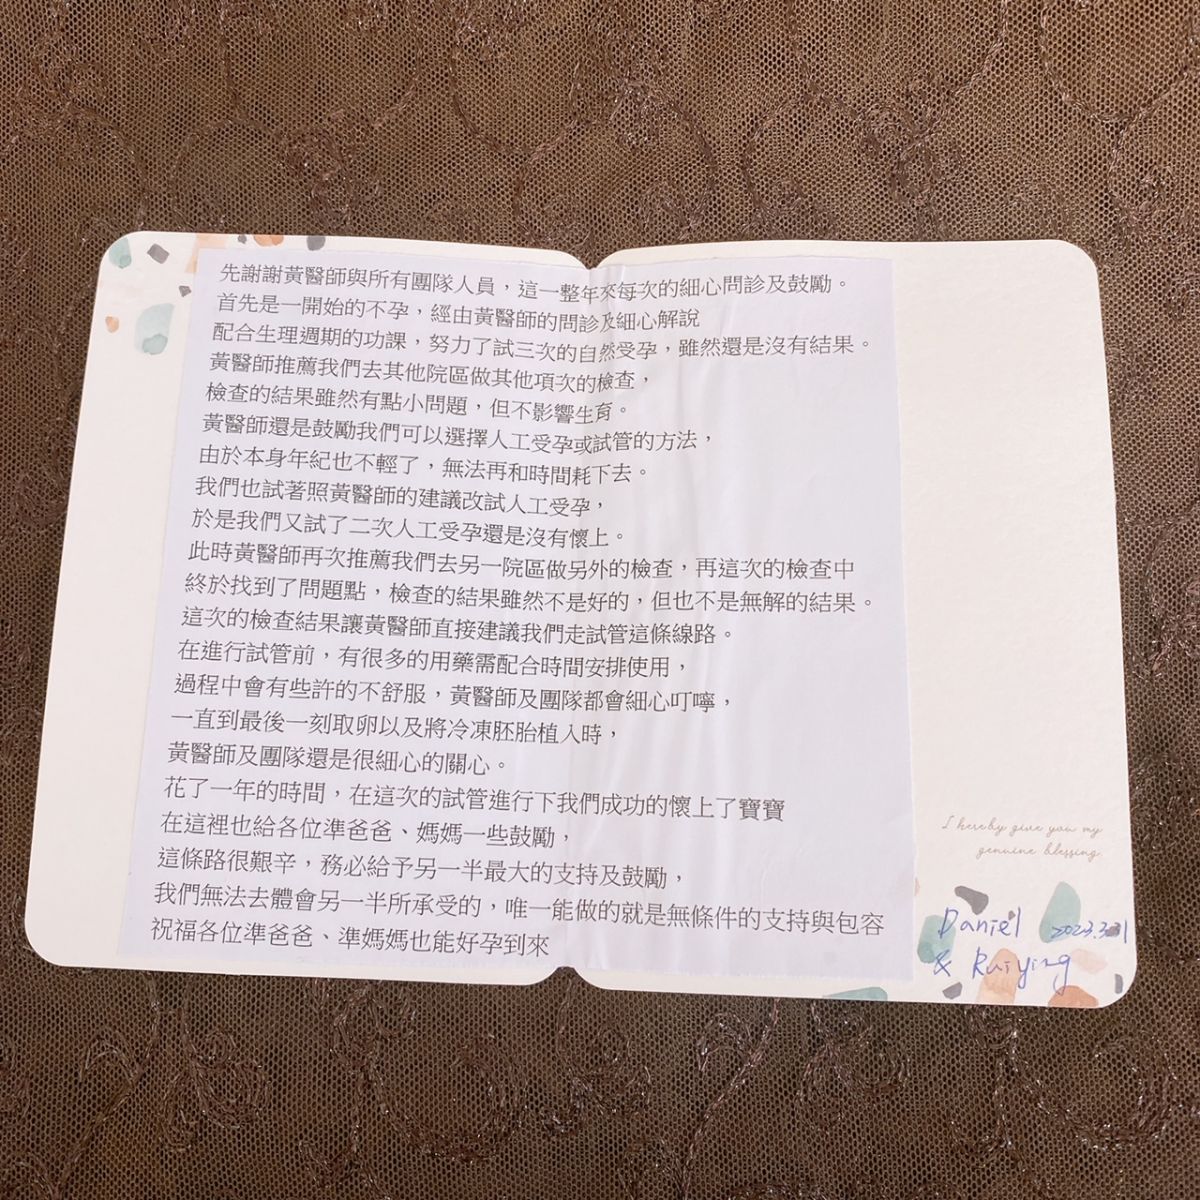 先謝謝黃醫師與所有團隊人員，這一整年來每次的細心問診及鼓勵。
首先是一開始的不孕，經由黃醫師的問診及細心解說
配合生理週期的功課，努力了試三次的自然受孕，雖然還是沒有結果。
黃醫師推薦我們去其他院區做其他項次的檢查，
檢查的結果雖然有點小問題，但不影響生育。
黃醫師還是鼓勵我們可以選擇人工受孕或試管的方法，
由於本身年紀也不輕了，無法再和時間耗下去。
我們也試著照黃醫師的建議改試人工受孕，
於是我們又試了二次人工受孕還是沒有懷上。
此時黃醫師再次推薦我們去另一院區做另外的檢查，再這次的檢查中
終於找到了問題點，檢查的結果雖然不是好的，但也不是無解的結果。
這次的檢查結果讓黃醫師直接建議我們走試管這條線路。
在進行試管前，有很多的用藥需配合時間安排使用，
過程中會有些許的不舒服，黃醫師及團隊都會細心叮嚀，
一直到最後一刻取卵以及將冷凍胚胎植入時，
黃醫師及團隊還是很細心的關心。
花了一年的時間，在這次的試管進行下我們成功的懷上了寶寶
在這裡也給各位準爸爸、媽媽一些鼓勵，
這條路很艱辛，務必給予另一半最大的支持及鼓勵，
我們無法去體會另一半所承受的，唯一能做的就是無條件的支持與包容
祝福各位準爸爸、準媽媽也能好孕到來
I hereby give you my
genuine blessing.
Daniel 2023.3.31
& Ruiying